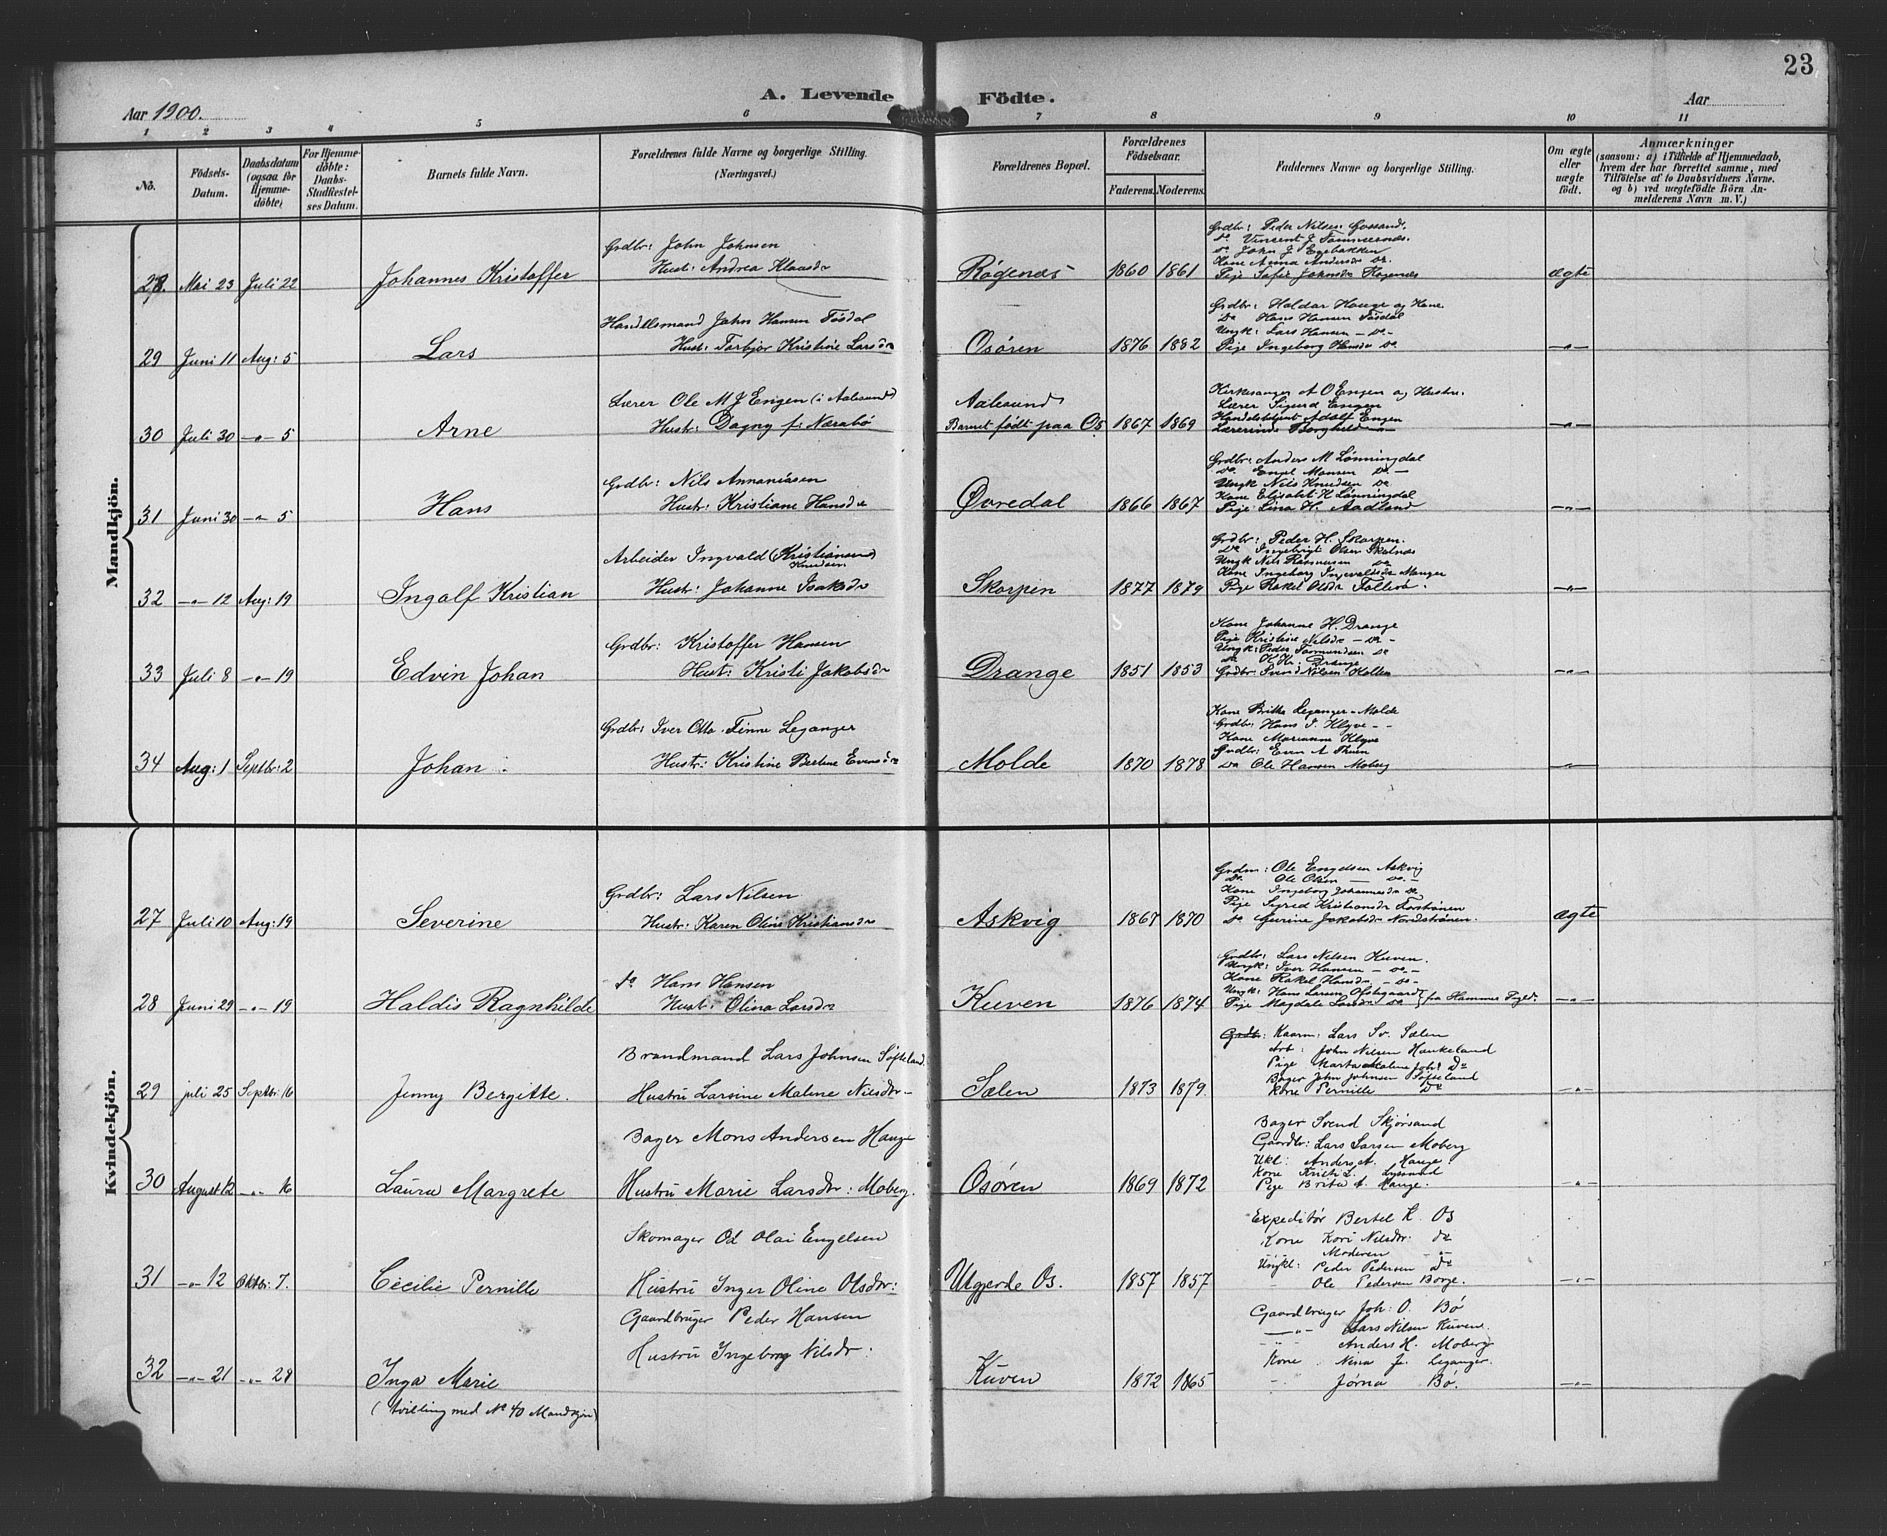 23
A. Levende Födte.
Aar 1900.
Aar
1 2 3 4 5 6 7 8 9 10 11
No.
Födsels-Datum.
Daabsdatum (ogsaa for Hjemme-döbte)
For Hjemme-döbte: Daabs-Stadfæstel-ses Datum.
Barnets fulde Navn.
Forældrenes fulde Navne og borgerlige Stilling. (Næringsvei.)
Forældrenes Bopæl.
Forældrenes Födselsaar.
Faderens. Moderens.
Faddernes Navne og borgerlige Stilling.
Om ægte eller uægte födt.
Anmærkninger (saasom: a) i Tilfælde af Hjemmedaab, hvem der har forrettet samme, med Tilföielse af to Daabsvidners Navne, og b) ved uægtefödte Börn An-melderens Navn m. V.)
Mandkjön.
Grdbr: John Johnsen
Grdbr: Peder Nilsen
Do Vincent J
Do John J
Kone Anna Andersdr Do
28. Mai 23 Juli 22 Johannes Kristoffer Hust: Andrea Klausdr Røgenæs 1860 1861 Pige Sofie Johnsdr Røgenæs ægte
Handelsmand John Hansen Tøsdal
Grdbr: Haldor Hauge og Kone
Do Hans Hansen Tøsdal
Ungk: Lars Hansen - Do -
29 Juni 11 Aug: 5 Lars Hust: Torbjør Kristine Larsdr Osören 1876 1882 Pige Ingeborg Hansdr Do -"-
Lærer Ole M J Engen (i Aalesund)
Aalesund
Kirkesanger A O Engen og Hustru.
Lærer Sigurd Engen
Adolf Engen
30 Juli 30 -"- 5 Arne Hustr: Dagny f: Nærabö Barnet födt paa Os 1867 1869 Lærerinde Borghild -"- -"-
Grdbr: Nils Annaniasen
Grdbr: Anders M Lønningdal
Do Engel Monsen Do -
Ungk Nils Knudsen Do
Kone Elisabet H Lønningdal
31 Juni 30 -"- 5 Hans Hustr: Kristiane Hansdr Øvredal 1866 1867 Pige Lina H. Aadland -"-
Arbeider Ingvald (Kristiansen)
Knudsen
Grdbr: Peder H. Skorpen.
Do Ingebrigt Olsen
Ungk Nils Rasmussen Do
Kone Ingeborg Ingvaldsdr Manger
32 -"- 12 Aug: 19 Ingolf Kristian Hustr: Johanne Isaksdr Skorpen 1877 1879 Pige Rakel Olsdr -"-
Grdbr: Kristoffer Hansen
Kone Johanne H. Drange
Pige Kristine Nilsdr - Do -
Ungk: Peder Do
Do K. Kr: Drange
33 Juli 8 -"- 19 Edvin Johan Hust: Kristi Jakobsdr Drange 1851 1853 Grdbr Svend Nilsen -"-
Grdbr: Iver Otto Finne Leganger
Kone Britta Leganger - Molde
Grdbr: Hans J. Klyve - -
Kone Marianne Klyve
Grdbr: Even A Thuen
34 Aug: 1 Septbr: 2 Johan . Hustr: Kristine Bertine Evensdr Molde 1870 1878 Do Ole Hansen Moberg -"-
Kvindekjön.
Grdbr: Lars Nilsen
Grdm: Ole Engelsen Askvig
Do Ole Olsen - Do -
Kone Ingeborg Johannesdr Do
Pige Sigrid Kristiansdr
27 Juli 10 Aug: 19 Severine Hustr: Karen Oline Kristiansdr Askvig 1867 1870 Do Jakobsdr Nordstrønen. ægte
Do Hans Hansen
Grdbr: Lars Nilsen Kuven.
Ungk: Iver Hansen - Do -
Kone Rakel Hansdr - Do -
Ungk: Hans Larsen
28 Juni 29 -"- 19 Haldis Ragnhilde Hust: Olina Larsdr Kuven 1876 1874 Pige Magdale Larsdr Do -"-
Brandmand Lars Johnsen Søfteland
Kaarm: Lars Sv. Sælen
Arb: John Nilsen Haukeland
Pige Marta Malene Johsd Do
Bager John Johnsen Søfteland
29 juli 25 Septbr: 16 Jenny Bergitte. Hustru Larsine Malene Nilsdr - Sælen 1873 1879. Kone Pernille Do -"-
Bager Mons Andersen Hauge
Bager Svend Skjørsand
Gaardbr: Lars Larsen Moberg
Ukl: Anders A. Hauge.
Kone Kristi L.
30 August 12 -"- 16 Laura Margrete Hustru Marie Larsdr: Moberg. Osören 1869 1872 Pige Brita A. Hauge. -"-
Skomager Od Olai Engelsen
Expeditør Bertel K. Os
Kone Kari Nilsdr: Do
Moderen -"-
Ungkl: Peder Pedersen Do
31 -"- 12 Oktbr: 7. Cecilie Pernille Hustru Inger Oline Olsdr: Utgjerde Os. 1857 1857 Ole Pedersen Borge. -"-
Gaardbruger Peder Hansen
Gaardbruger Joh: O. Bö
-"- Lars Nilsen Kuven.
-"- Anders H. Moberg
Hustru Ingeborg Nilsdr:
Kone Nina J. Leganger.
32 -"- 21 -"- 28 Inga Marie Kuven 1872 1865 Jørna Bö. -"-
(tvilling med No 40 Mandkjøn)